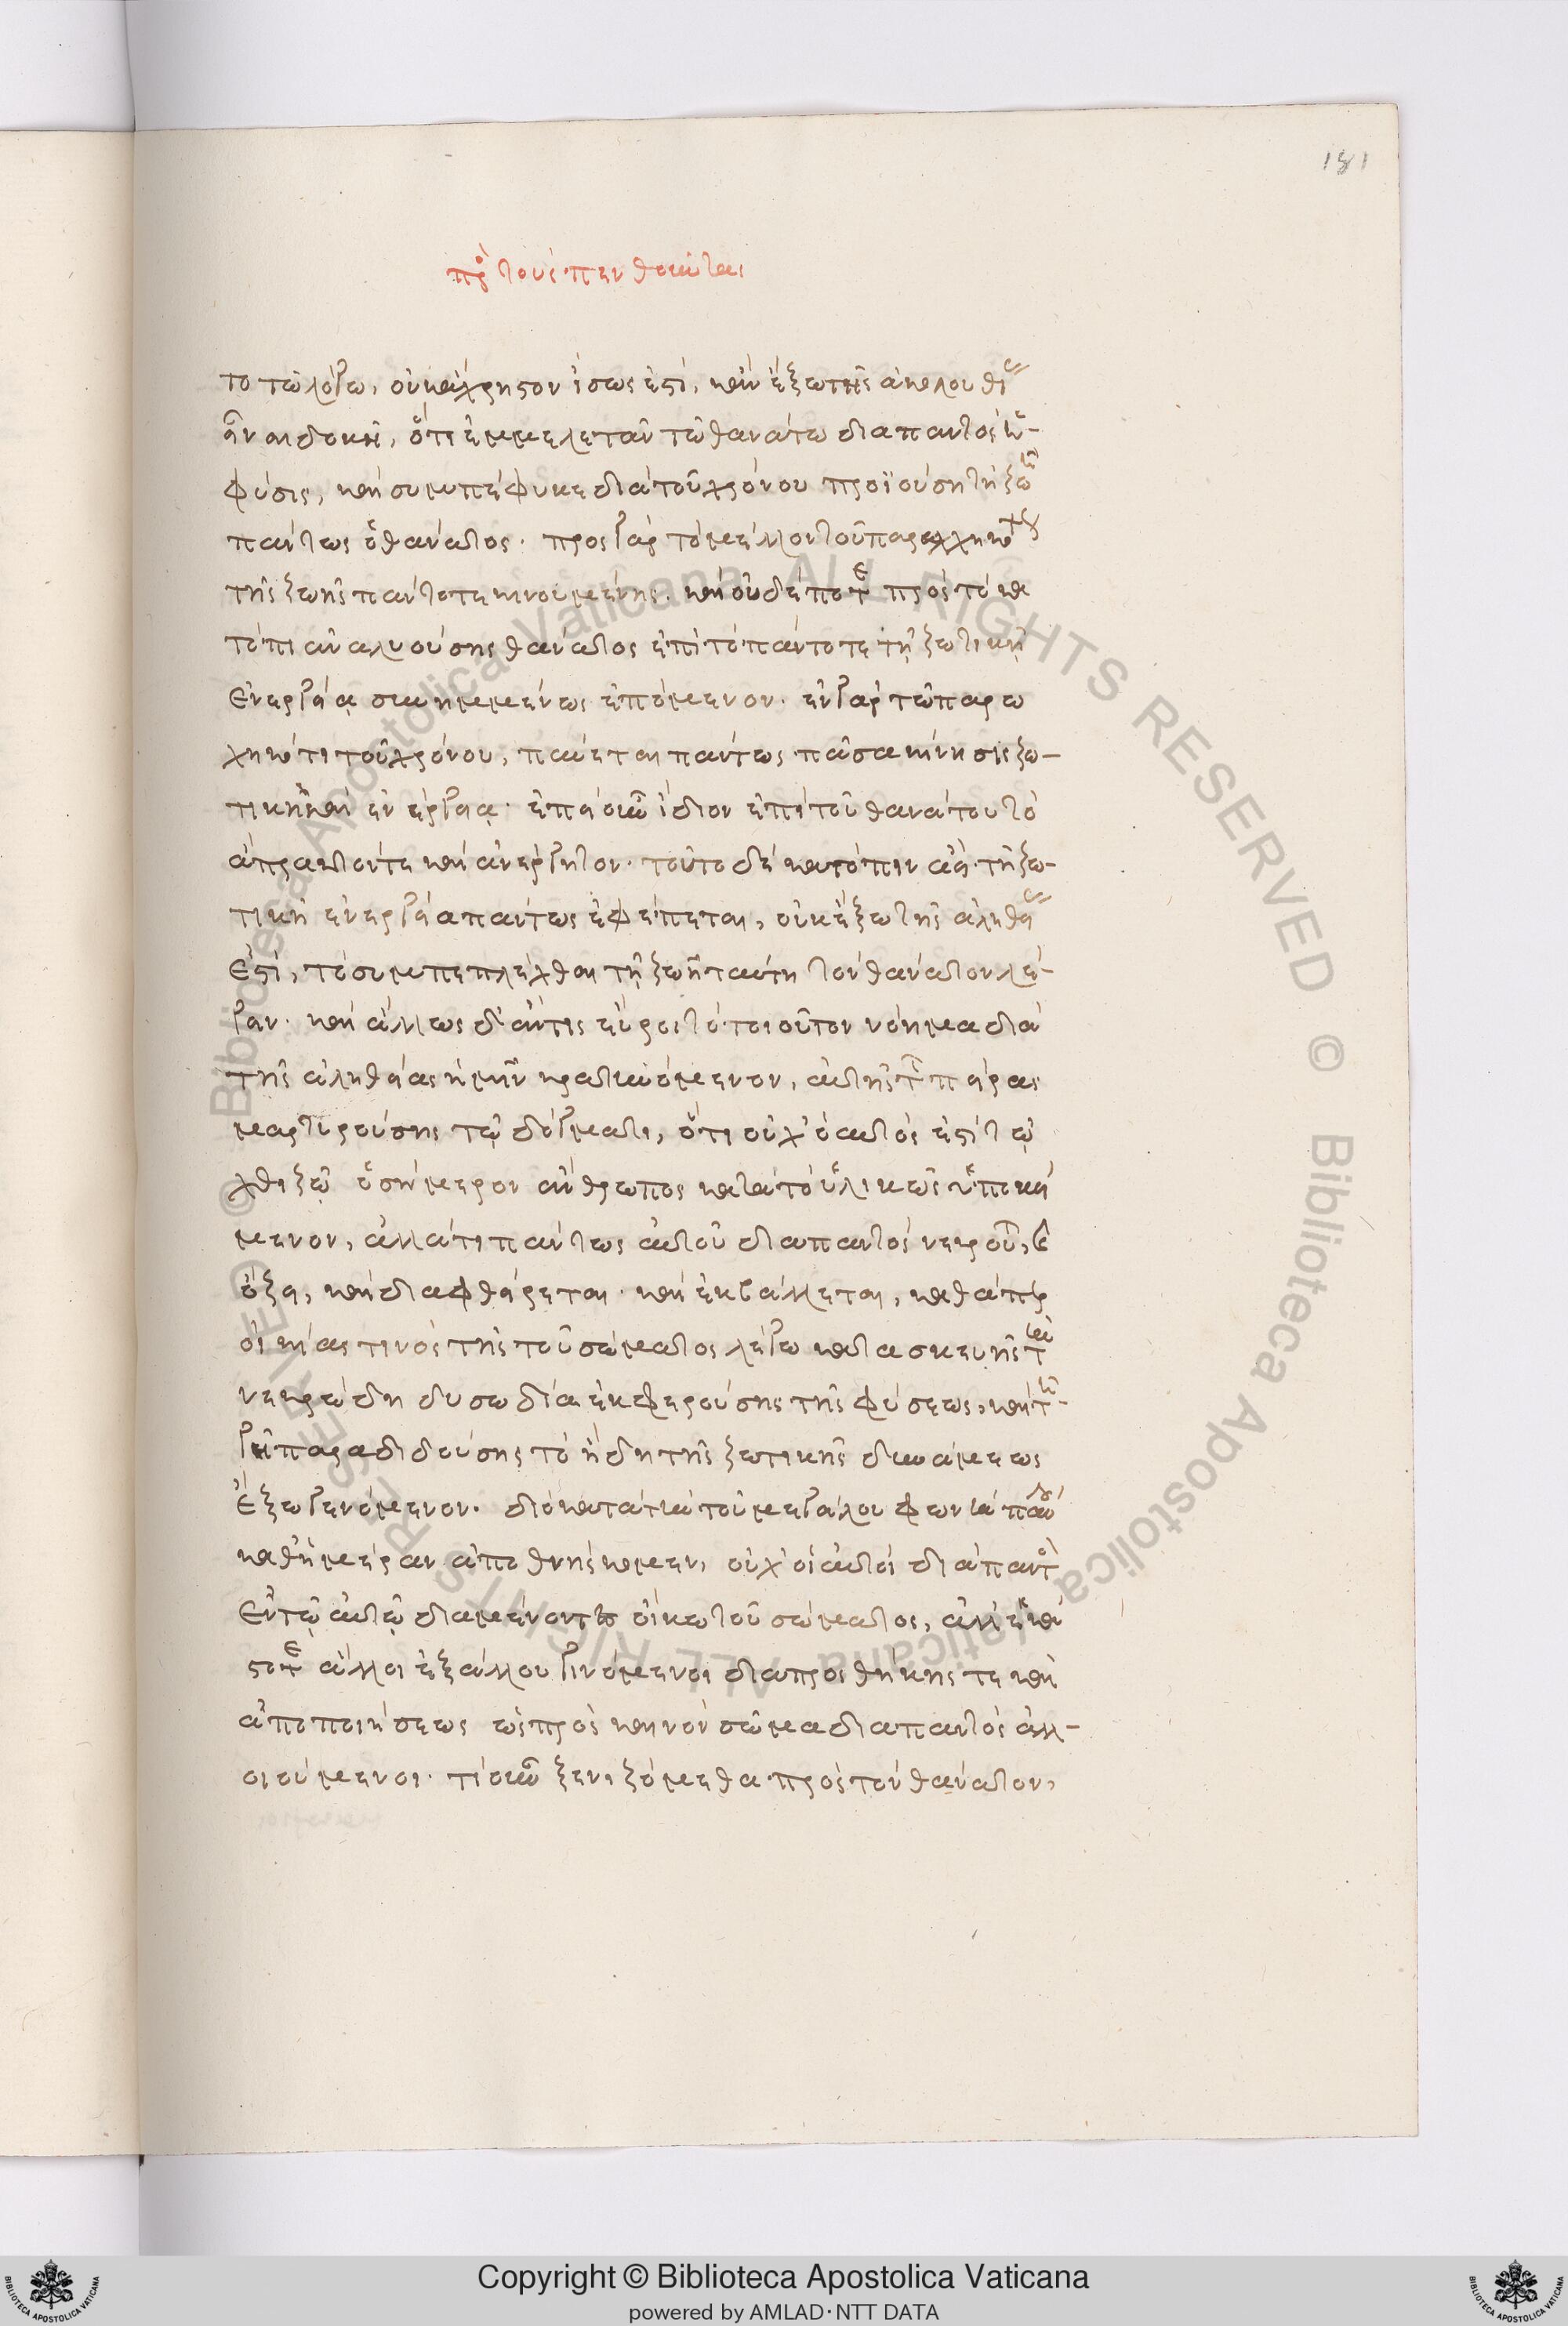 181
πρὸς τοὺς πενθοῦντας
το τῶ λόγω, οὐκ ἄχρηστον ἴσως ἐστὶ, κἂν ἔξω τῆς ἀκολουθίας
εἶναι δοκῆ, ὅτι ἐμμελετᾶν τῶ θανάτω διαπαντὸς ἡ
φύσις, καὶ συμπέφυκε διὰ τοῦ χρόνου προϊούση τῆ ζωῆ
πάντως ὁ θάνατος. προς γὰρ τὸ μέλλον τοῦ παρωχηκότος
τῆς ζωῆς πάντοτε κινουμένης. καὶ οὐδέποτε πρὸς τὸ κα
τόπιν ἀναλυούσης θάνατος ἐπὶ τὸ πάντοτε τῆ ζωτικῆ
ἐνεργεία συνημμένως ἑπόμενον. ἐν γὰρ τῶ παρω
χηκότι τοῦ χρόνου, παύεται πάντως πᾶσα κίνησις ζω-
τικὴ καὶ ἐνέργεια. ἐπεὶ οὖν ἴδιον ἐπὶ τοῦ θανάτου τὸ
ἄπρακτόν τε καὶ ἀνεργητον. τοῦτο δὲ κατόπιν ἀεὶ τῆ ζω-
τικῆ ἐνεργεία πάντως ἐφέπεται, οὐκ ἔξω τῆς ἀληθείας
ἐστὶ, τὸ συμπεπλέχθαι τῆ ζωῆ ταύτη τὸν θάνατον λέ-
γειν. καὶ ἄλλως δ' ἄν τις εὕροι τὸ τοιοῦτον νόημα διὰ
τῆς ἀληθείας ἡμῖν κρατυνόμενον, αὐτῆς τῆς πείρας
μαρτυρούσης τῷ δόγματι, ὅτι οὐχ' ὁ αὐτός ἐστὶ τῷ
χθιζῷ ὁ σήμερον ἄνθρωπος κατὰ τὸ ὑλικῶς ὑποκεί
μενον, ἀλλά τι πάντως αὐτοῦ διαπαντὸς νεκροῦται,
ὄζει, καὶ διαφθείρεται. καὶ ἐκβάλλεται, καθάπερ
οἰκίας τινὸς τῆς τοῦ σώματος λέγω κατασκευῆς τὴν
νεκρώδη δυσωδία ἐκφερούσης τῆς φύσεως, καὶ τῆ
γῆ παραδιδούσης τὸ ἤδη τῆς ζωτικῆς δυνάμεως
ἔξω γενόμενον. διὸ κατὰ τὴν τοῦ μεγάλου φωνὴν παύλου
καθ' ἡμέραν ἀποθνήσκομεν, οὐχ' οἱ αὐτοὶ διὰ παντὸς
ἐν τῷ αὐτῷ διαμένοντες οἴκω τοῦ σώματος, ἀλλ' ἑκά
στοτε ἄλλοι ἐξ ἄλλου γινόμενοι διὰ προσθήκης τε καὶ
ἀποποιήσεως ὡς πρὸς καινὸν σῶμα διαπαντὸς ἀλλ-
οιούμενοι. τί οὖν ξενιζόμεθα πρὸς τὸν θάνατον,
Copyright © Biblioteca Apostolica Vaticana
powered by AMLAD·NTT DATA